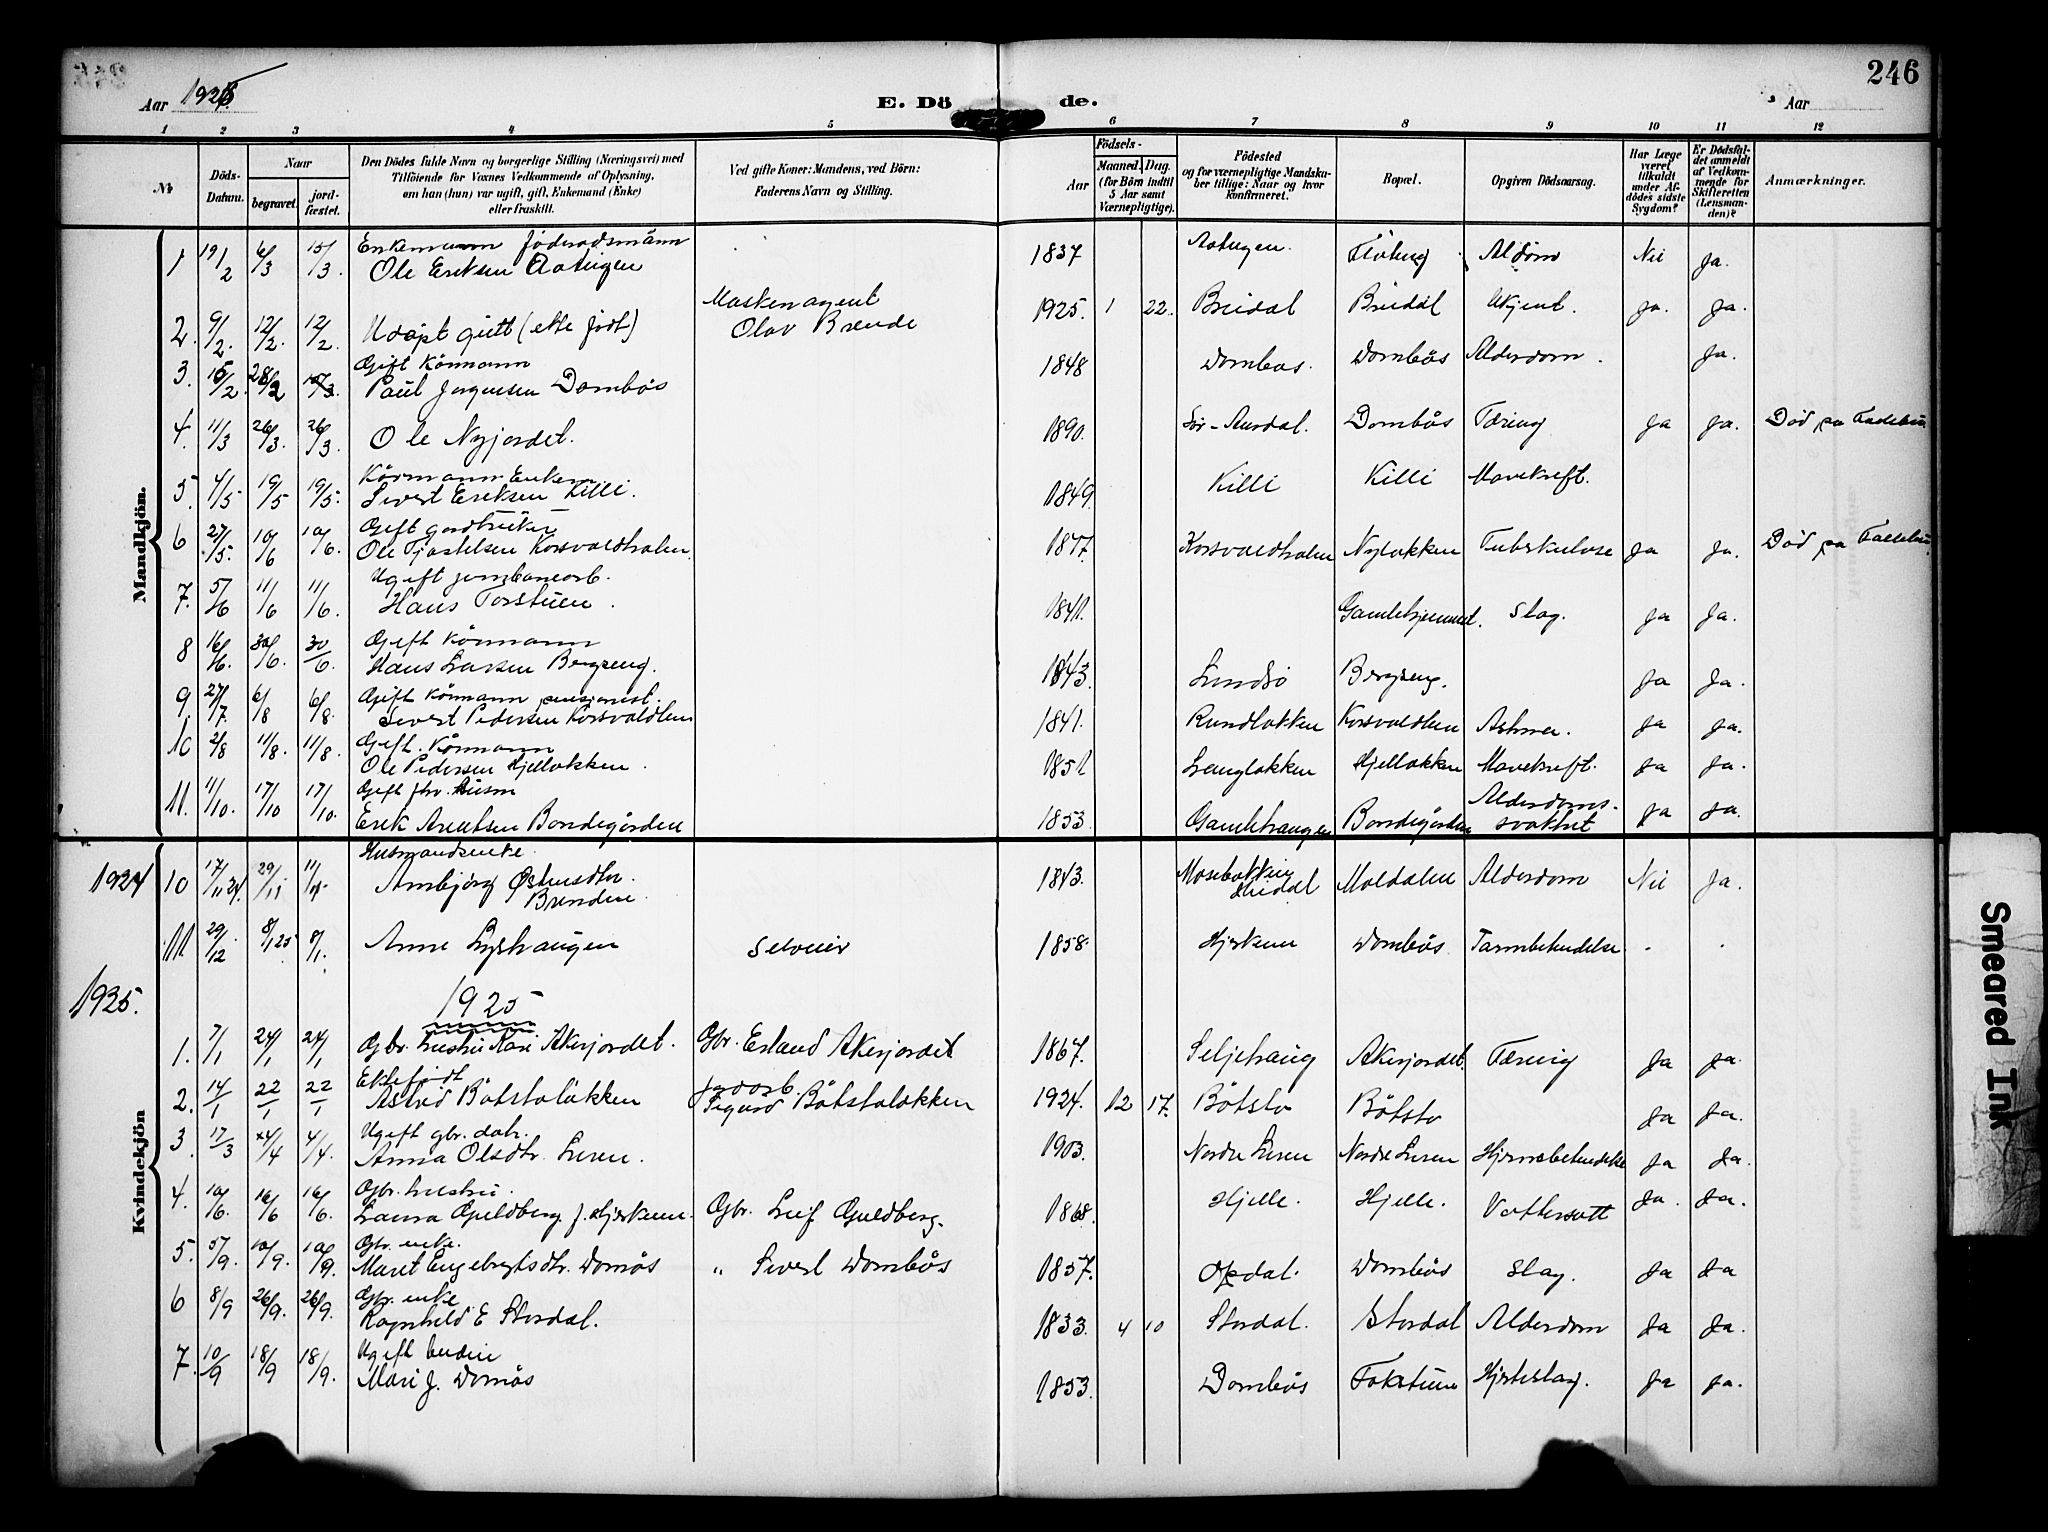 246
Aar 1925
E. Dö de.
Aar
1 2 3 4 5 6 7 8 9 10 11 12
№
Döds-
Datum.
Naar
begravet.
jord-
fæstet.
Den Dödes fulde Navn og borgerlige Stilling (Næringsvei) med
Tilföiende for Voxnes Vedkommende af Oplysning,
om han (hun) var ugift, gift, Enkemand (Enke)
eller fraskilt.
Ved gifte Koner: Mandens, ved Börn:
Faderens Navn og Stilling.
Födsels-
Aar
Maaned.
Dag.
(for Börn indtil
5 Aar samt
Værnepligtige).
Födested
og for værnepligtige Mandska-
ber tillige: Naar og hvor
konfirmeret.
Bopæl.
Opgiven Dödsaarsag.
Har Læge
været
tilkaldt
under Af-
dödes sidste
Sygdom?
Er Dödsfal-
det anmeldt
af Vedkom-
mende for
Skifteretten
(Lensman-
den)?
Anmærkninger.
Mandkjön.
1 19/2 6/3 15/3 Enkemann föderaadsmann
Ole Eriksen 1837
2. 9/2. 12/2. 12/2. Udöpt gutt (ekte födt) Maskenagent
Olav Brende 1925. 1 22. Bredal Bredal Ukjent. ja. ja.
3. 28/2 Gift Körmann
Paul Jørgensen Dombås 1848 Dombås. Dombås Alderdom. ja.
4. 11/3 26/3. 26/3. Ole Nyjordet. 1890. Sör-Aurdal. Dombås Tæring ja ja. Död pa
5 4/5 19/5 19/5. Körmann Enkem
Sivert Eriksen Killi. 1849. Killi Killi Mavekreft.
6 27/5. 10/6 10/6. Gift gardbruker
Ole Korsvoldhalen. 1877. Korsvoldhalen Nyløkken Tuberkulose ja ja. Död pa
7. 5/6 11/6 11/6. Ugift jernbanearb.
Hans Torstuen. 1841. Gamlehjemmet. Slag. ja ja.
8 16/6. 30/6. 30/6. Gift Körmann
Hans Larsen Bergseng. 1843. Lundsö Bergseng. ja ja.
9. 27/7. 6/8 6/8. Gift Körmann pensjonist.
Sivert Pedersen Korsvoldhlen 1841. Rundløkken Korsvoldhlen Astma. ja ja.
10 2/8 11/8. 11/8. Gift. Körmann
Ole Pedersen Hjelløkken. 1851 Langløkken Hjelløkken Mavekreft. ja ja.
11. 11/10. 17/10 17/10. Gift fhv. Husm
Erik Arentsen Bondegården 1853. Gamlehaugen Bondegården Alderdoms-
svakhet ja ja.
1924 10 17/11 24. 29/11 Husmandsenke.
Ambjörg
Brenden. 1843. Moldalen Alderdom Nei ja.
11. 29/12. 8/1 25 8/1. Anne Lyshaugen Selveier 1858. Hjerkinn Dombås Tarmbetendelse
1925. 1925
Kvindekjön
1. 7/1 24/1 24/1 Gbr. hustru Kari Akerjordet. Gbr. Erland Akerjordet 1867. Seljehaug Akerjordet. Tæring ja ja.
2. 14/1 22/1 22/1 Ektefödt
Astrid Båtstoløkken jordarb.
Sigurd Båtstoløkken 1924. 12 17. Båtstø Båtstø ja ja.
3. 17/3 4/4 4/4. Ugift gbr. datr.
Anna Olsdtr. Luren. 1903. Nordre Luren Nordre Luren Hjernebetendelse ja ja.
4. 10/6. 16/6 16/6. Gbr. hustru.
Laura Guldberg f. Hjerkinn. Gbr. Leif Guldberg. 1868. Hjelle. Hjelle. Vattersott ja. ja.
5. 5/9. 10/9. 10/9. Gbr. enke.
Marit Engebregtsdtr. Domås „ Sivert Dombås 1857. Opdal. Dombås Slag. ja ja
6 8/9 26/9. 26/9. Gbr. enke
Ragnhild E Stordal. 1833. 4 10 Stordal. Stordal Alderdom ja ja.
7. 10/9 18/9 18/9. Ugift budeie
Mari J. Domås 1853. Dombås Fokstuen Hjerteslag. ja ja.
Smeared Ink